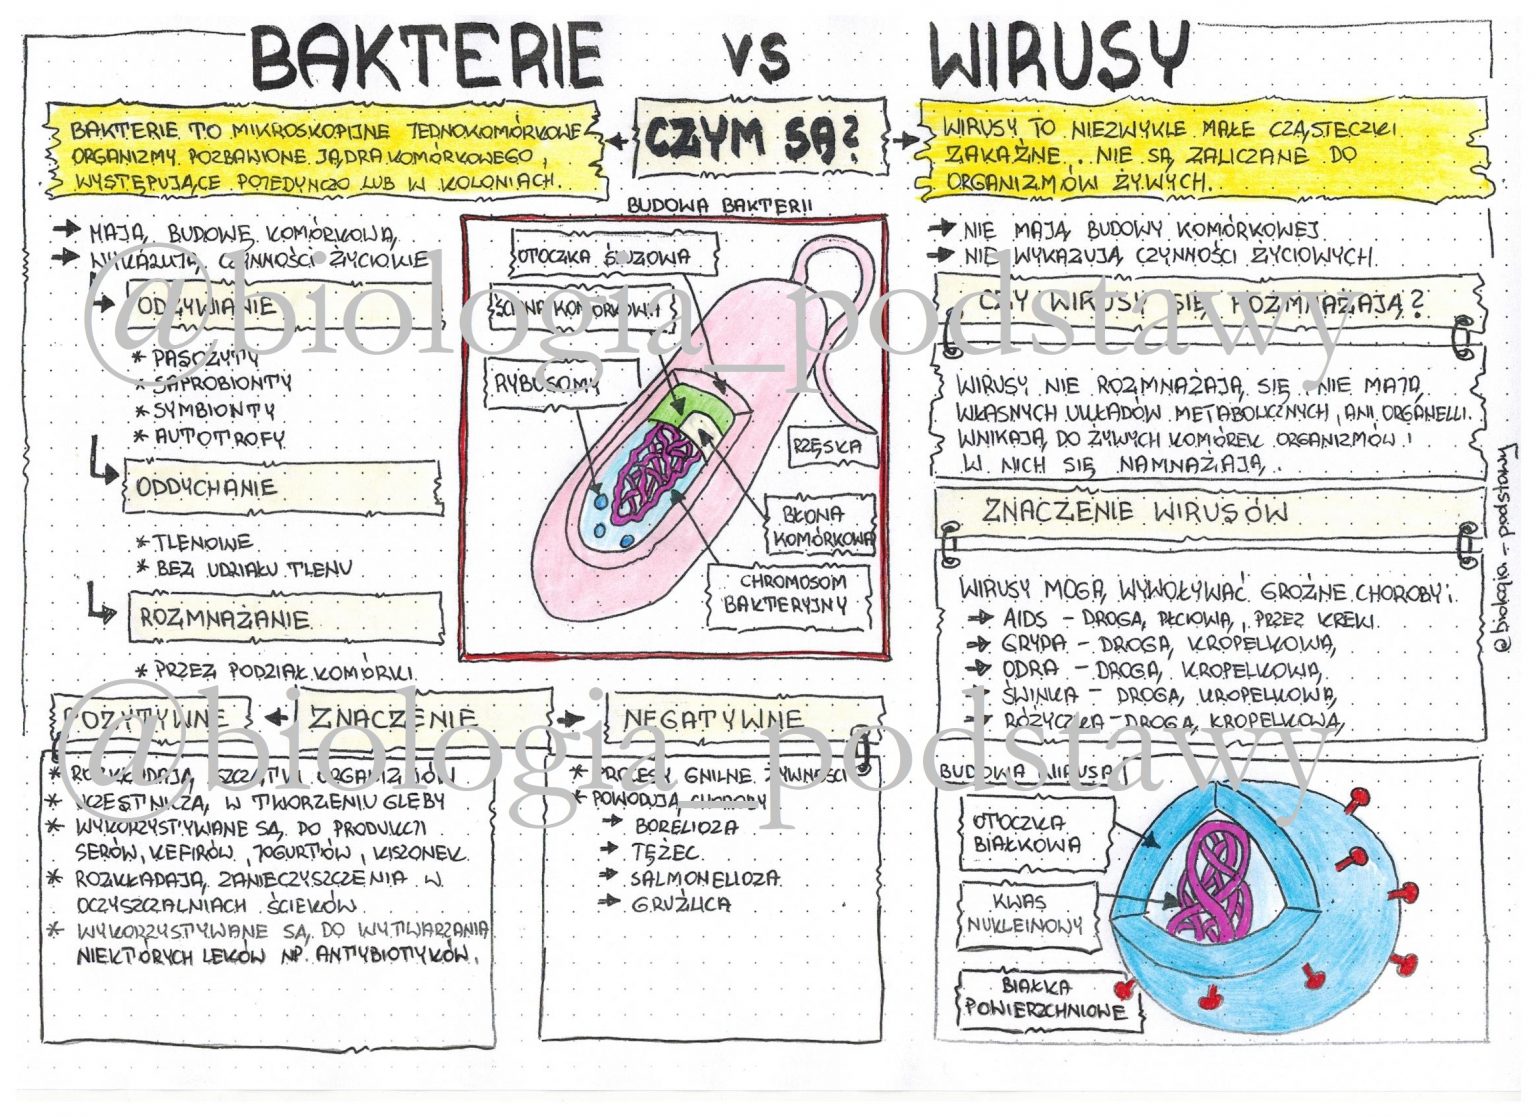 BAKTERIE VS WIRUSY
CZYM SĄ?
BAKTERIE TO MIKROSKOPIJNE JEDNOKOMÓRKOWE
ORGANIZMY POZBAWIONE JĄDRA KOMÓRKOWEGO,
WYSTĘPUJĄCE POJEDYNCZO LUB W KOLONIACH.
→ MAJĄ BUDOWĘ KOMÓRKOWĄ
→ WYKAZUJĄ CZYNNOŚCI ŻYCIOWE
→ ODŻYWIANIE
* PASOŻYTY
* SAPROBIONTY
* SYMBIONTY
* AUTOTROFY
ODDYCHANIE
* TLENOWE
* BEZ UDZIAŁU TLENU
ROZMNAŻANIE
* PRZEZ PODZIAŁ KOMÓRKI
BUDOWA BAKTERII
OTOCZKA ŚLUZOWA
ŚCIANA KOMÓRKOWA
RYBUSOMY
RZĘSKA
BŁONA
KOMÓRKOWA
CHROMOSOM
BAKTERYJNY
POZYTYWNE ← ZNACZENIE → NEGATYWNE
* ROZKŁADAJĄ SZCZĄTKI ORGANIZMÓW
* UCZESTNICZĄ W TWORZENIU GLEBY
* WYKORZYSTYWANE SĄ DO PRODUKCJI
SERÓW, KEFIRÓW, JOGURTÓW, KISZONEK
* ROZKŁADAJĄ ZANIECZYSZCZENIA W
OCZYSZCZALNIACH ŚCIEKÓW
* WYKORZYSTYWANE SĄ DO WYTWARZANIA
NIEKTÓRYCH LEKÓW NP. ANTYBIOTYKÓW.
* PROCESY GNILNE ŻYWNOŚCI
* POWODUJĄ CHOROBY
→ BORELIOZA
→ TĘŻEC
→ SALMONELLOZA
→ GRUŹLICA
WIRUSY TO NIEZWYKLE MAŁE CZĄSTECZKI
ZAKAŹNE. NIE SĄ ZALICZANE DO
ORGANIZMÓW ŻYWYCH.
→ NIE MAJĄ BUDOWY KOMÓRKOWEJ
→ NIE WYKAZUJĄ CZYNNOŚCI ŻYCIOWYCH.
CZY WIRUSY SIĘ ROZMNAŻAJĄ?
WIRUSY NIE ROZMNAŻAJĄ SIĘ. NIE MAJĄ
WŁASNYCH UKŁADÓW METABOLICZNYCH, ANI ORGANELLI.
WNIKAJĄ DO ŻYWYCH KOMÓREK ORGANIZMÓW I
W NICH SIĘ NAMNAŻAJĄ.
ZNACZENIE WIRUSÓW
WIRUSY MOGĄ WYWOŁYWAĆ GROŹNE CHOROBY:
→ AIDS - DROGĄ PŁCIOWĄ, PRZEZ KREW
→ GRYPA - DROGĄ KROPELKOWĄ
→ ODRA - DROGĄ KROPELKOWĄ
→ ŚWINKA - DROGĄ KROPELKOWĄ
→ RÓŻYCZKA - DROGĄ KROPELKOWĄ
BUDOWA WIRUSA
OTOCZKA
BIAŁKOWA
KWAS
NUKLEINOWY
BIAŁKA
POWIERZCHNIOWE
@biologia_podstawy
@biologia_podstawy
@biologia_podstawy